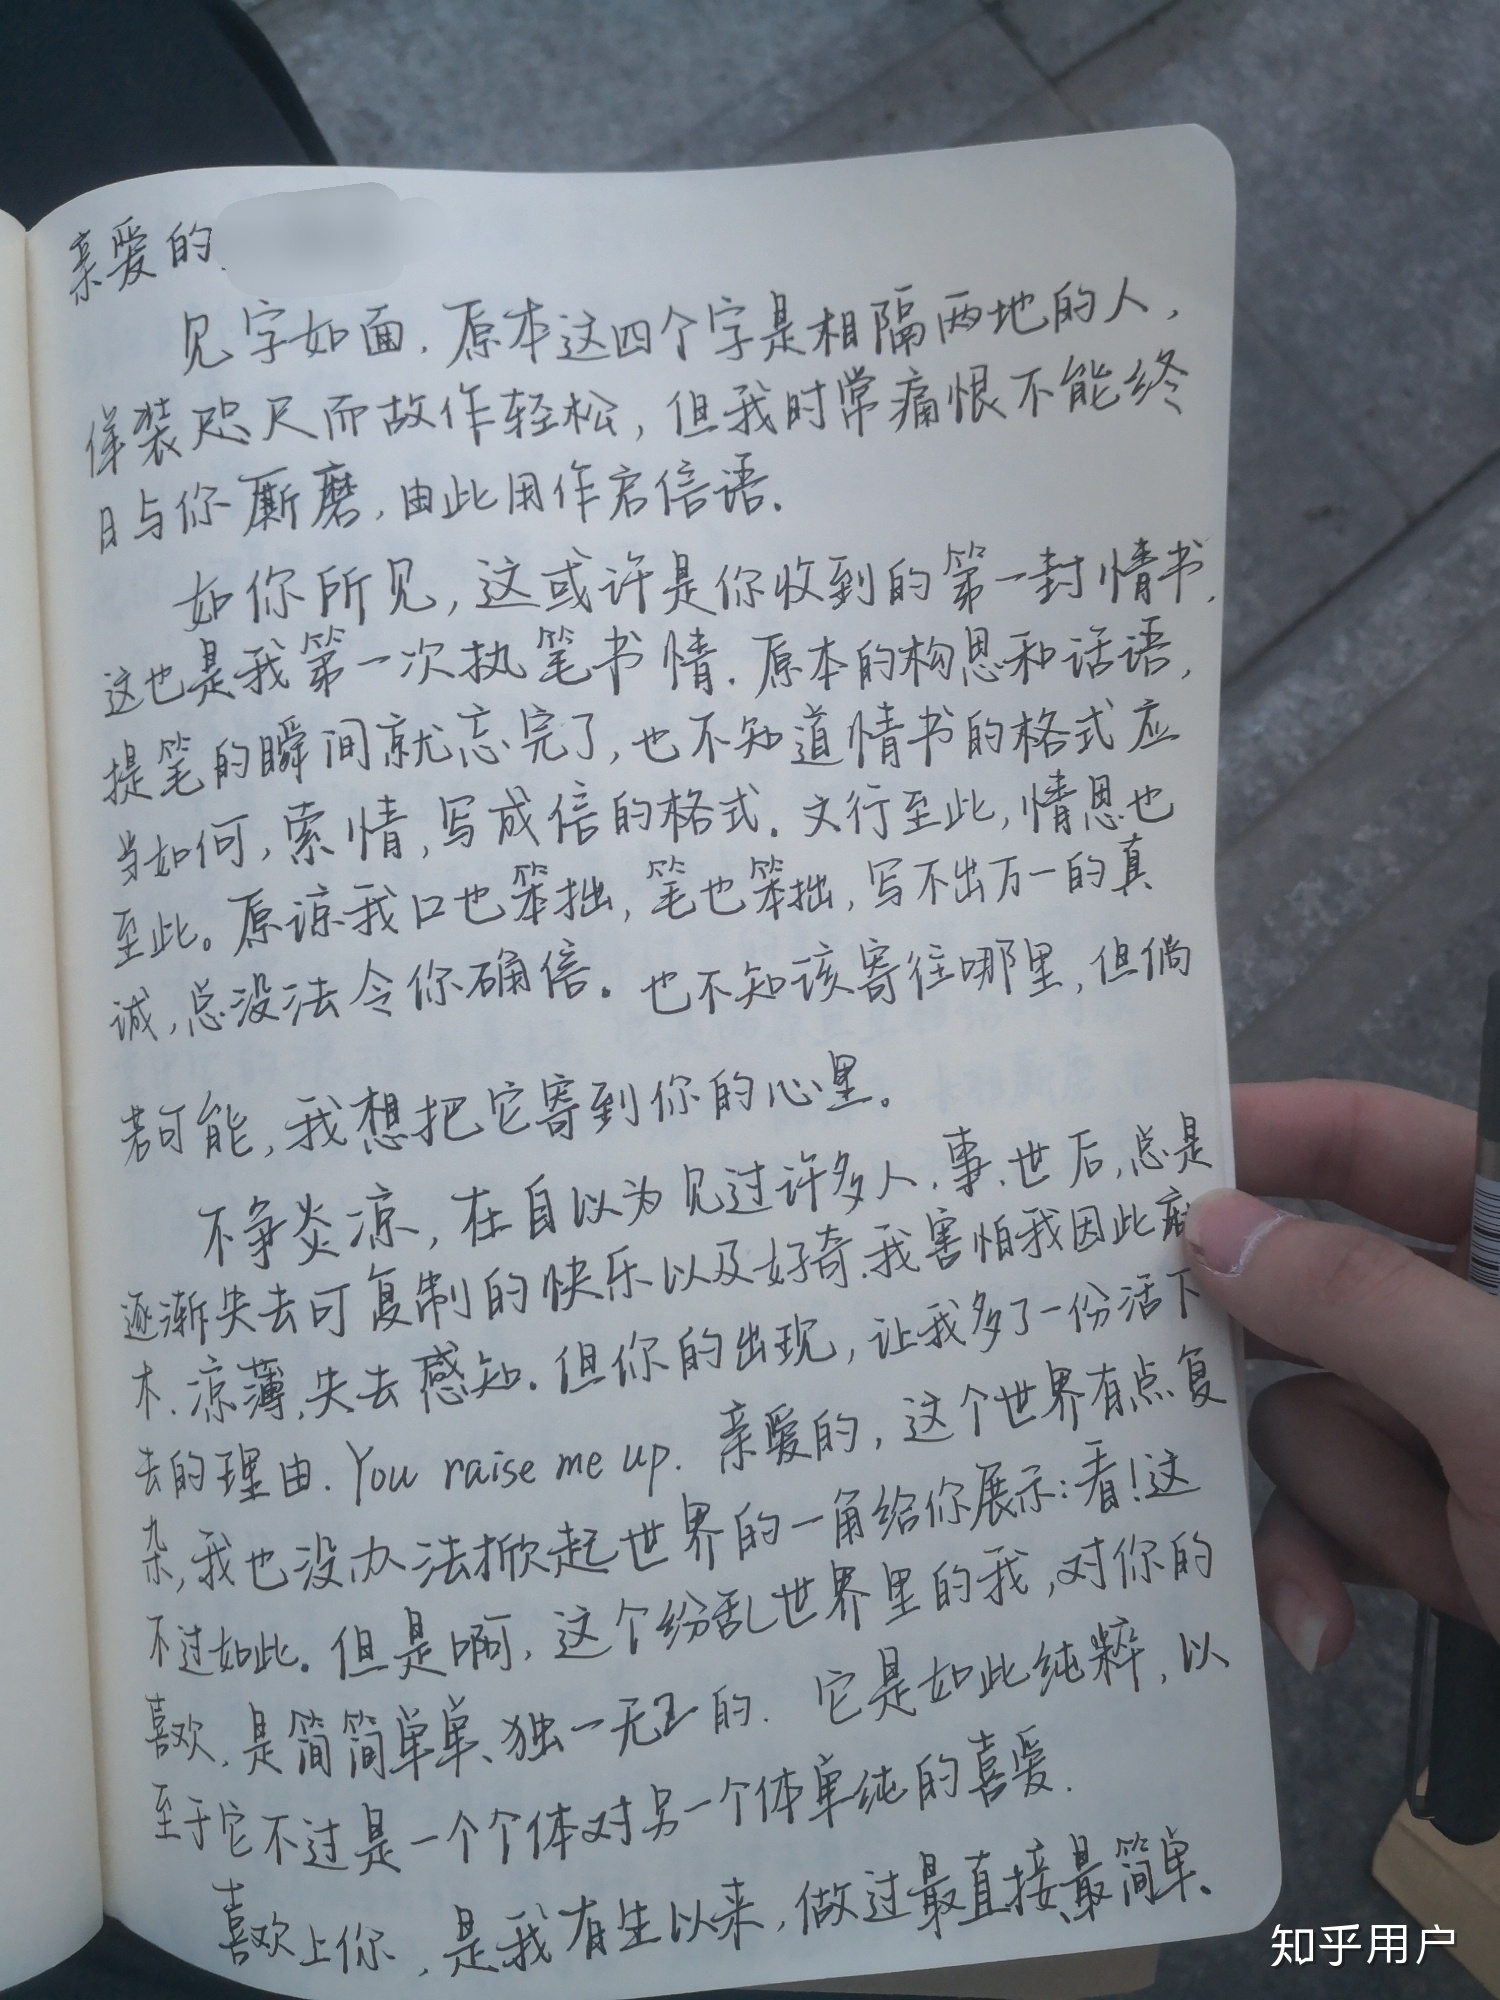 亲爱的
见字如面.原本这四个字是相隔两地的人,
佯装咫尺而故作轻松,但我时常痛恨不能终
日与你厮磨,由此用作启信语.
如你所见,这或许是你收到的第一封情书,
这也是我第一次执笔书情.原本的构思和话语,
提笔的瞬间就忘完了,也不知道情书的格式应
当如何,索情,写成信的格式.文行至此,情思也
至此。原谅我口也笨拙,笔也笨拙,写不出万一的真
诚,总没法令你确信。也不知该寄往哪里,但倘
若可能,我想把它寄到你的心里。
不争炎凉,在自以为见过许多人、事、世后,总是
逐渐失去可复制的快乐以及好奇.我害怕我因此麻
木、凉薄,失去感知.但你的出现,让我多了一份活下
去的理由.You raise me up.亲爱的,这个世界有点复
杂,我也没办法掀起世界的一角给你展示:看!这
不过如此。但是啊,这个纷乱世界里的我,对你的
喜欢,是简简单单、独一无二的.它是如此纯粹,以
至于它不过是一个个体对另一个体单纯的喜爱.
喜欢上你,是我有生以来,做过最直接、最简单、
知乎用户